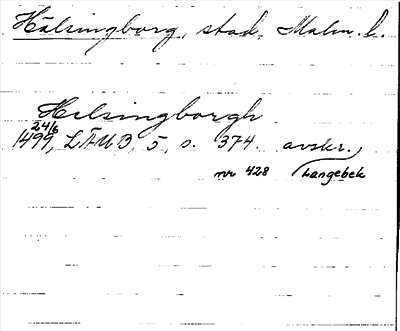 Hälsingborg, stad, Malm. l.
Helsingborgh
24/6
1499, LÄUB, 5, s. 374. avskr.,
nr 428 Langebek